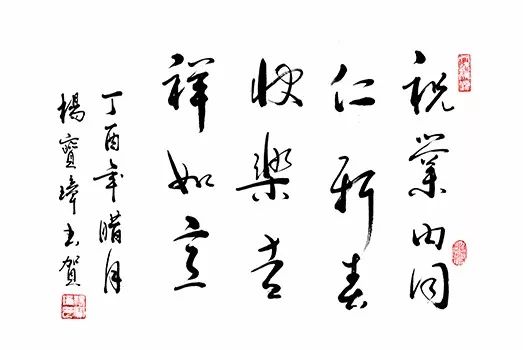 祝業内同
仁新春
快樂吉
祥如意
丁酉年臘月
楊寶璋書賀